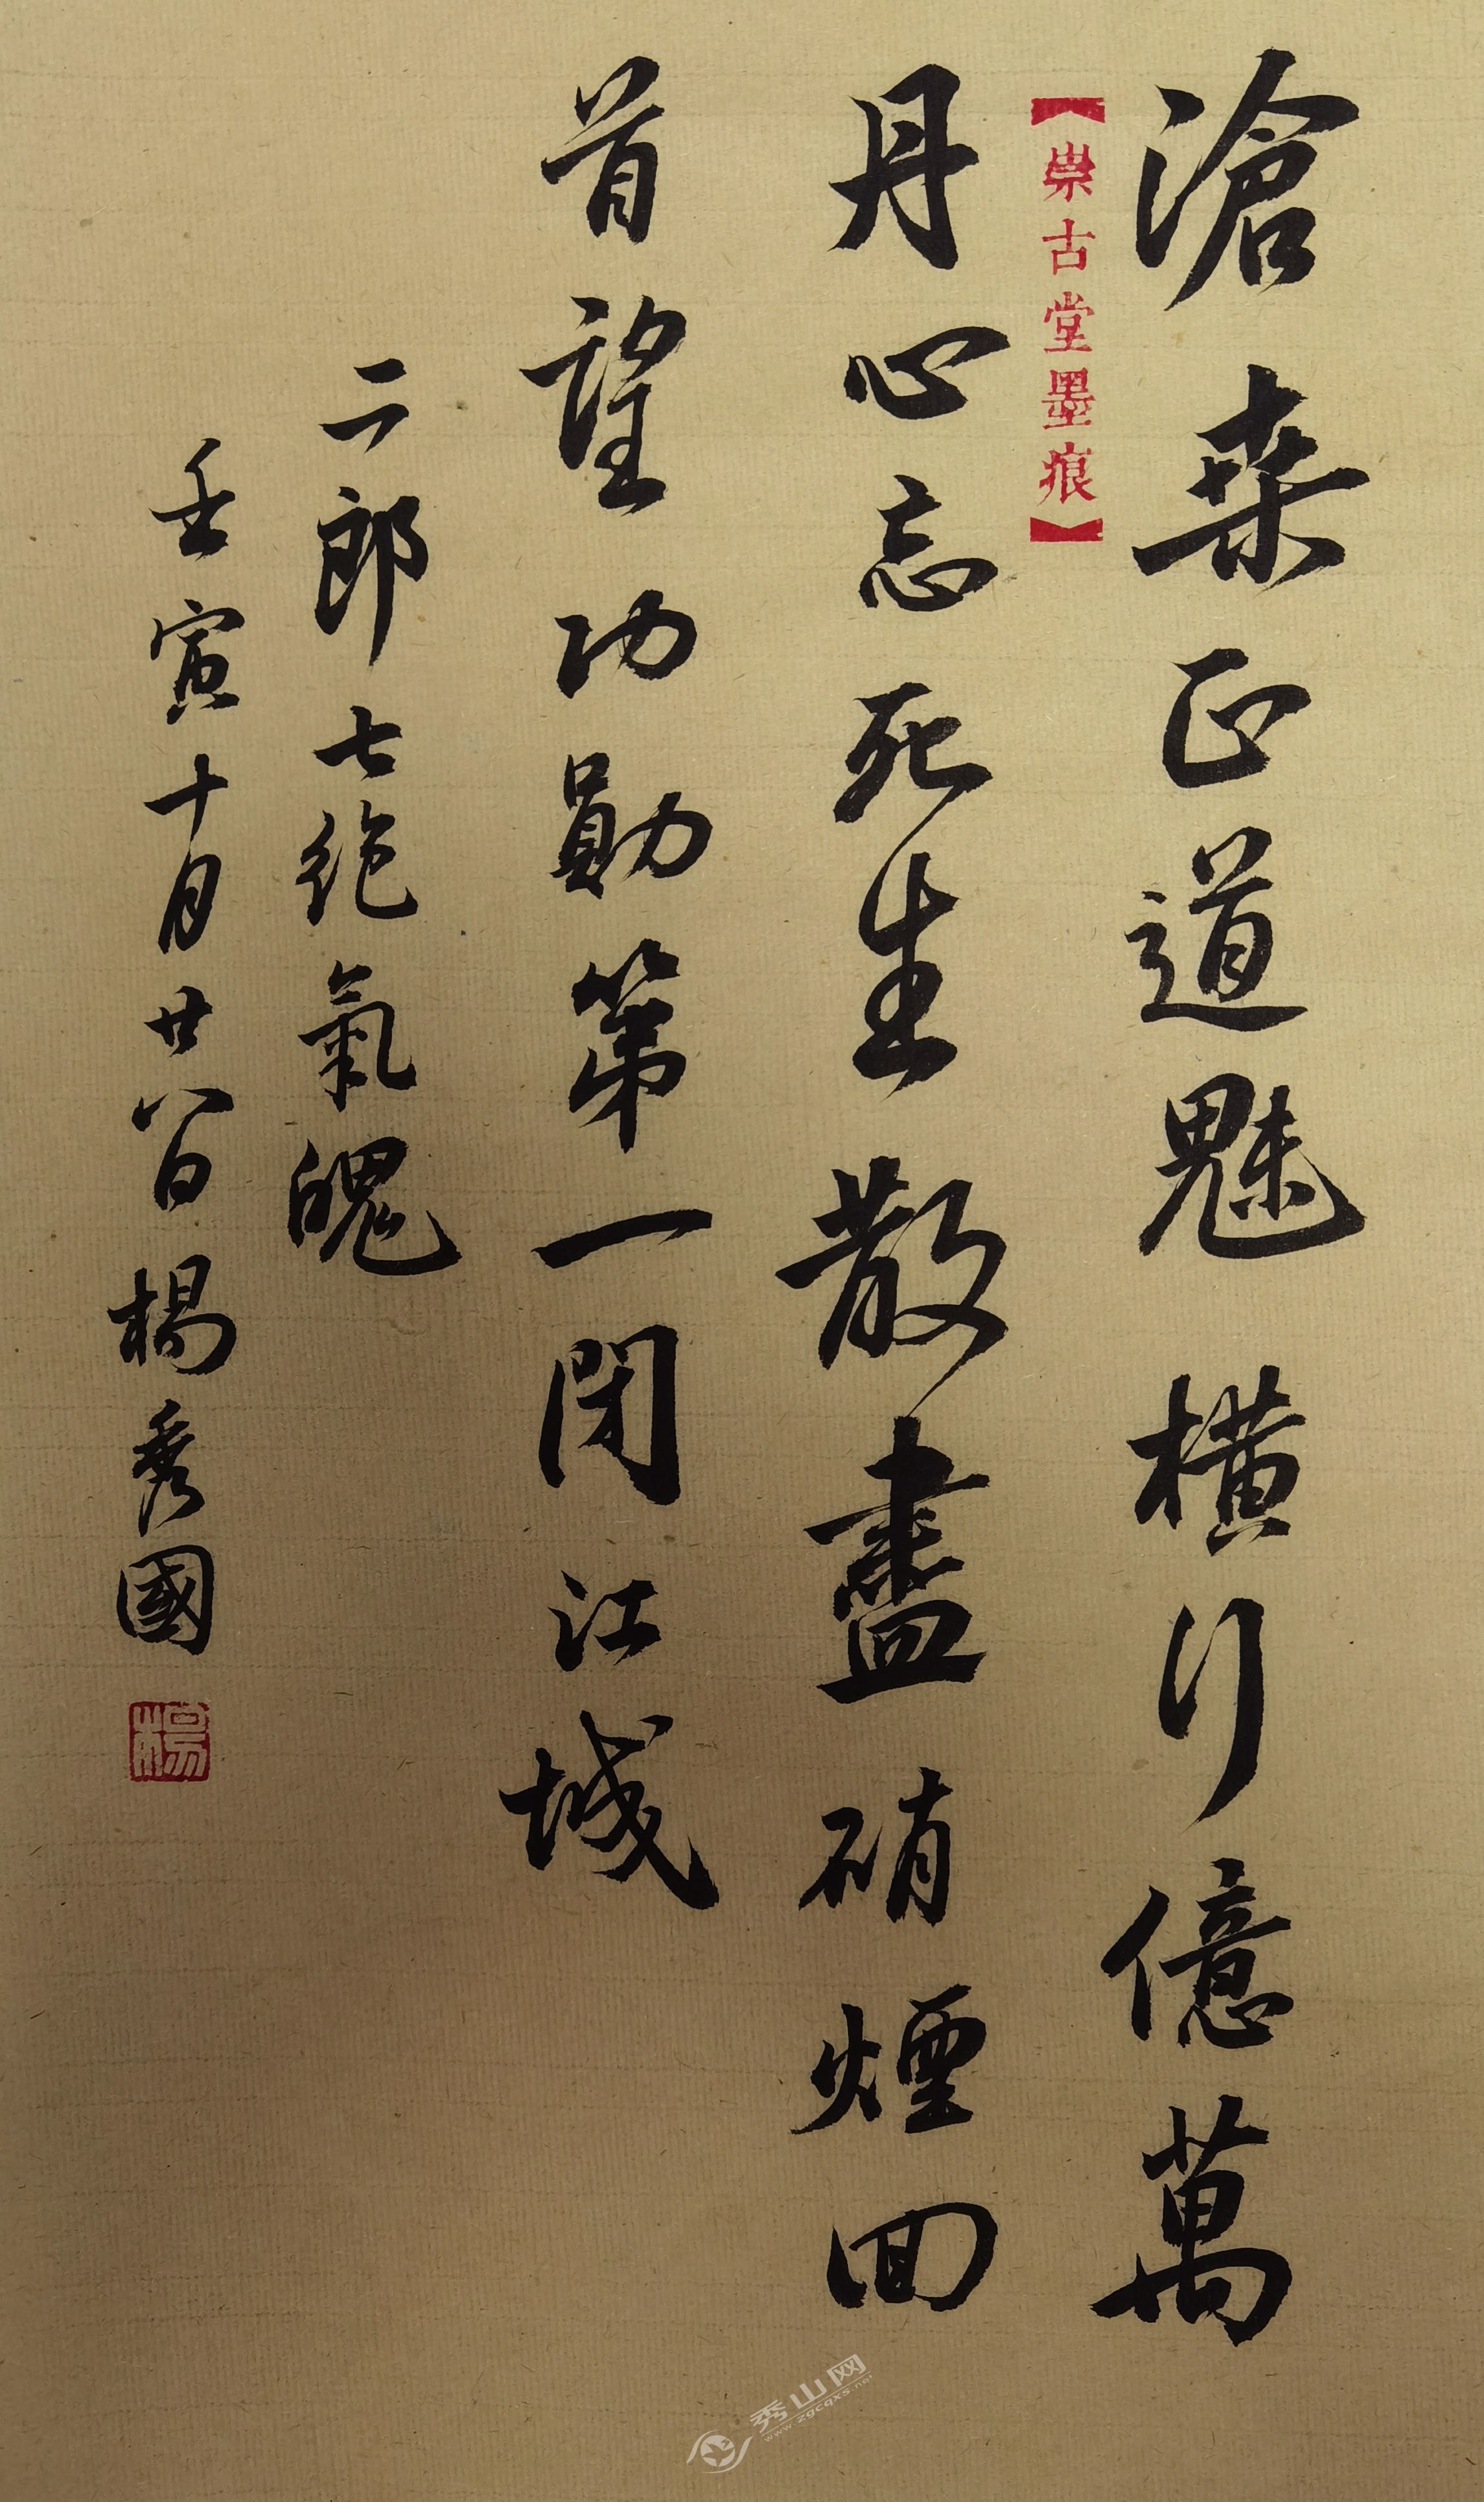 滄桑正道魅橫行億萬
丹心忘死生散盡硝煙回
首望功勛第一閉江城
二郎七绝氣魄
壬寅十月廿八日楊秀國
【崇古堂墨痕】
楊
秀山网
www.zgcqxs.net